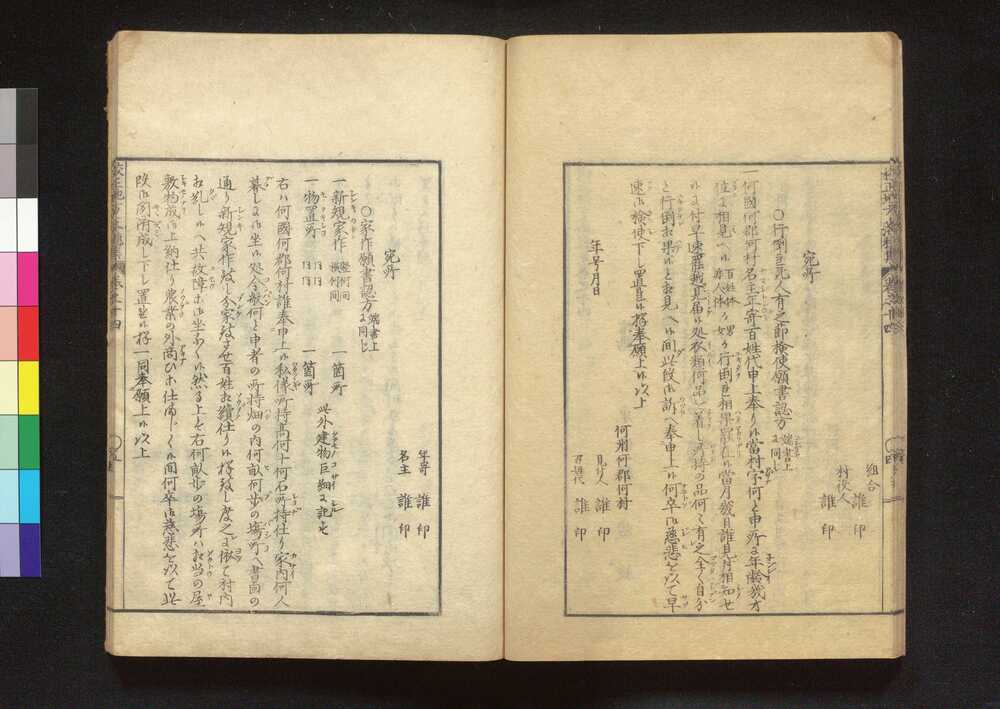 組合
誰印
村役人
誰印
宛所
○行倒死人有之節検使願書認方
端書上
ニ同し
一何國何郡何村名主年寄百姓代申上奉り候當村字何と申所に年齢幾才
位と相見へ候
百姓体
非人体
の
男
女
行倒
相果
罷在候
當月幾日誰見付相知せ
候に付早速罷越見届候処衣類何品を着し所持の品何々有之全く自分
と行倒相果候と相見へ候間此段御訴へ奉申上候何卒御慈悲を以て早
速御検使下し置れ候様奉願上候以上
年号月日
何州何郡何村
見付人
誰印
百姓代
誰印
年寄
誰印
名主
誰印
宛所
○家作願書認方
端書上
ニ同し
一新規家作
竪何間
横何間
一箇所
一物置所
同同
同同
一箇所
此外建物巨細に記す
右ハ何國何郡何村誰奉申上候私儀所持高何十何石所持仕り家内何人
暮しに御坐候処今般何と申者の所持畑の内何畝何歩の場所へ書面の
通り新規家作致し分家致させ百姓相續仕り候様致し度之に依て村内
相糺し候へ共故障等御坐なく候然る上は右何畝歩の場所ハ相当の屋
敷物成御上納仕り農業の外商ひ等仕間じく候間何卒御慈悲を以て此
段御聞済成し下し置れ候様一同奉願上候以上